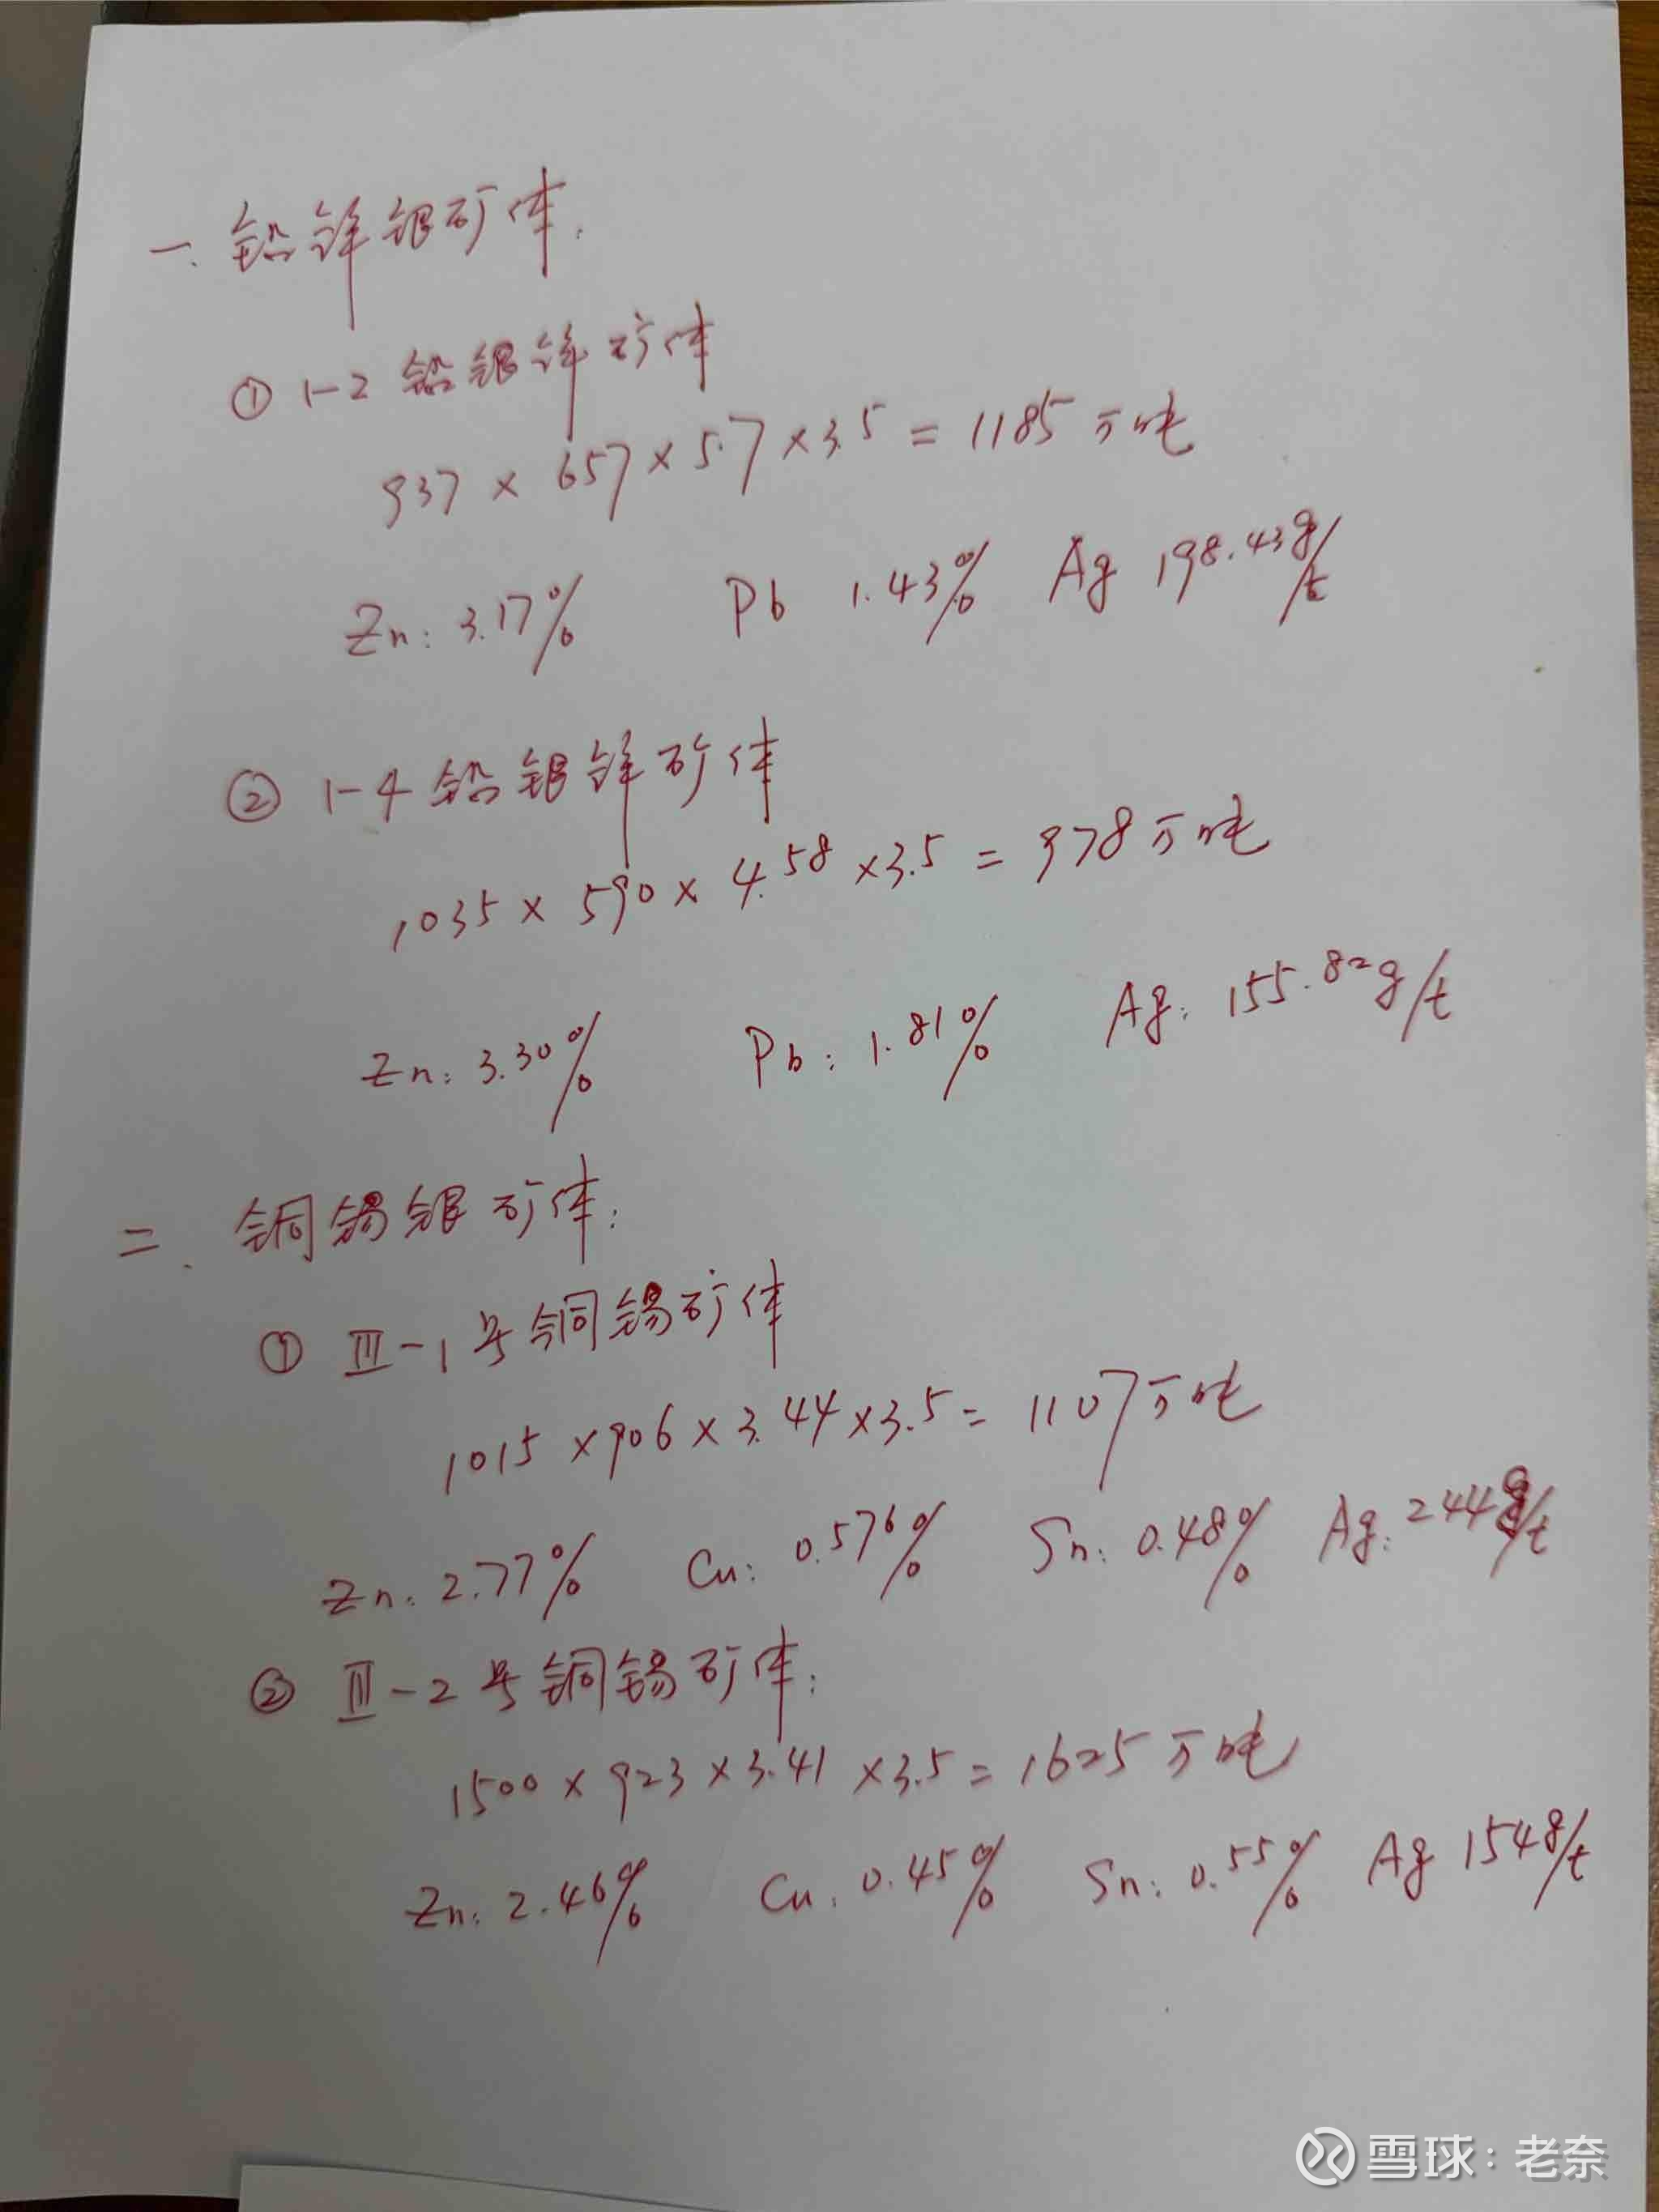 一. 铅锌银矿体:
① 1-2 铅银锌矿体
937 × 657 × 5.7 × 3.5 = 1185 万吨
Zn: 3.17% Pb 1.43% Ag 198.43g/t
② 1-4 铅银锌矿体
1035 × 590 × 4.58 × 3.5 = 978 万吨
Zn: 3.30% Pb: 1.81% Ag: 155.82g/t
二. 铜锡银矿体:
① Ⅲ-1号铜锡矿体
1015 × 906 × 3.44 × 3.5 = 1107万吨
Zn: 2.77% Cu: 0.576% Sn: 0.48% Ag: 244g/t
② Ⅲ-2号铜锡矿体:
1500 × 923 × 3.41 × 3.5 = 1625 万吨
Zn: 2.46% Cu: 0.45% Sn: 0.55% Ag 154g/t
雪球:老奈